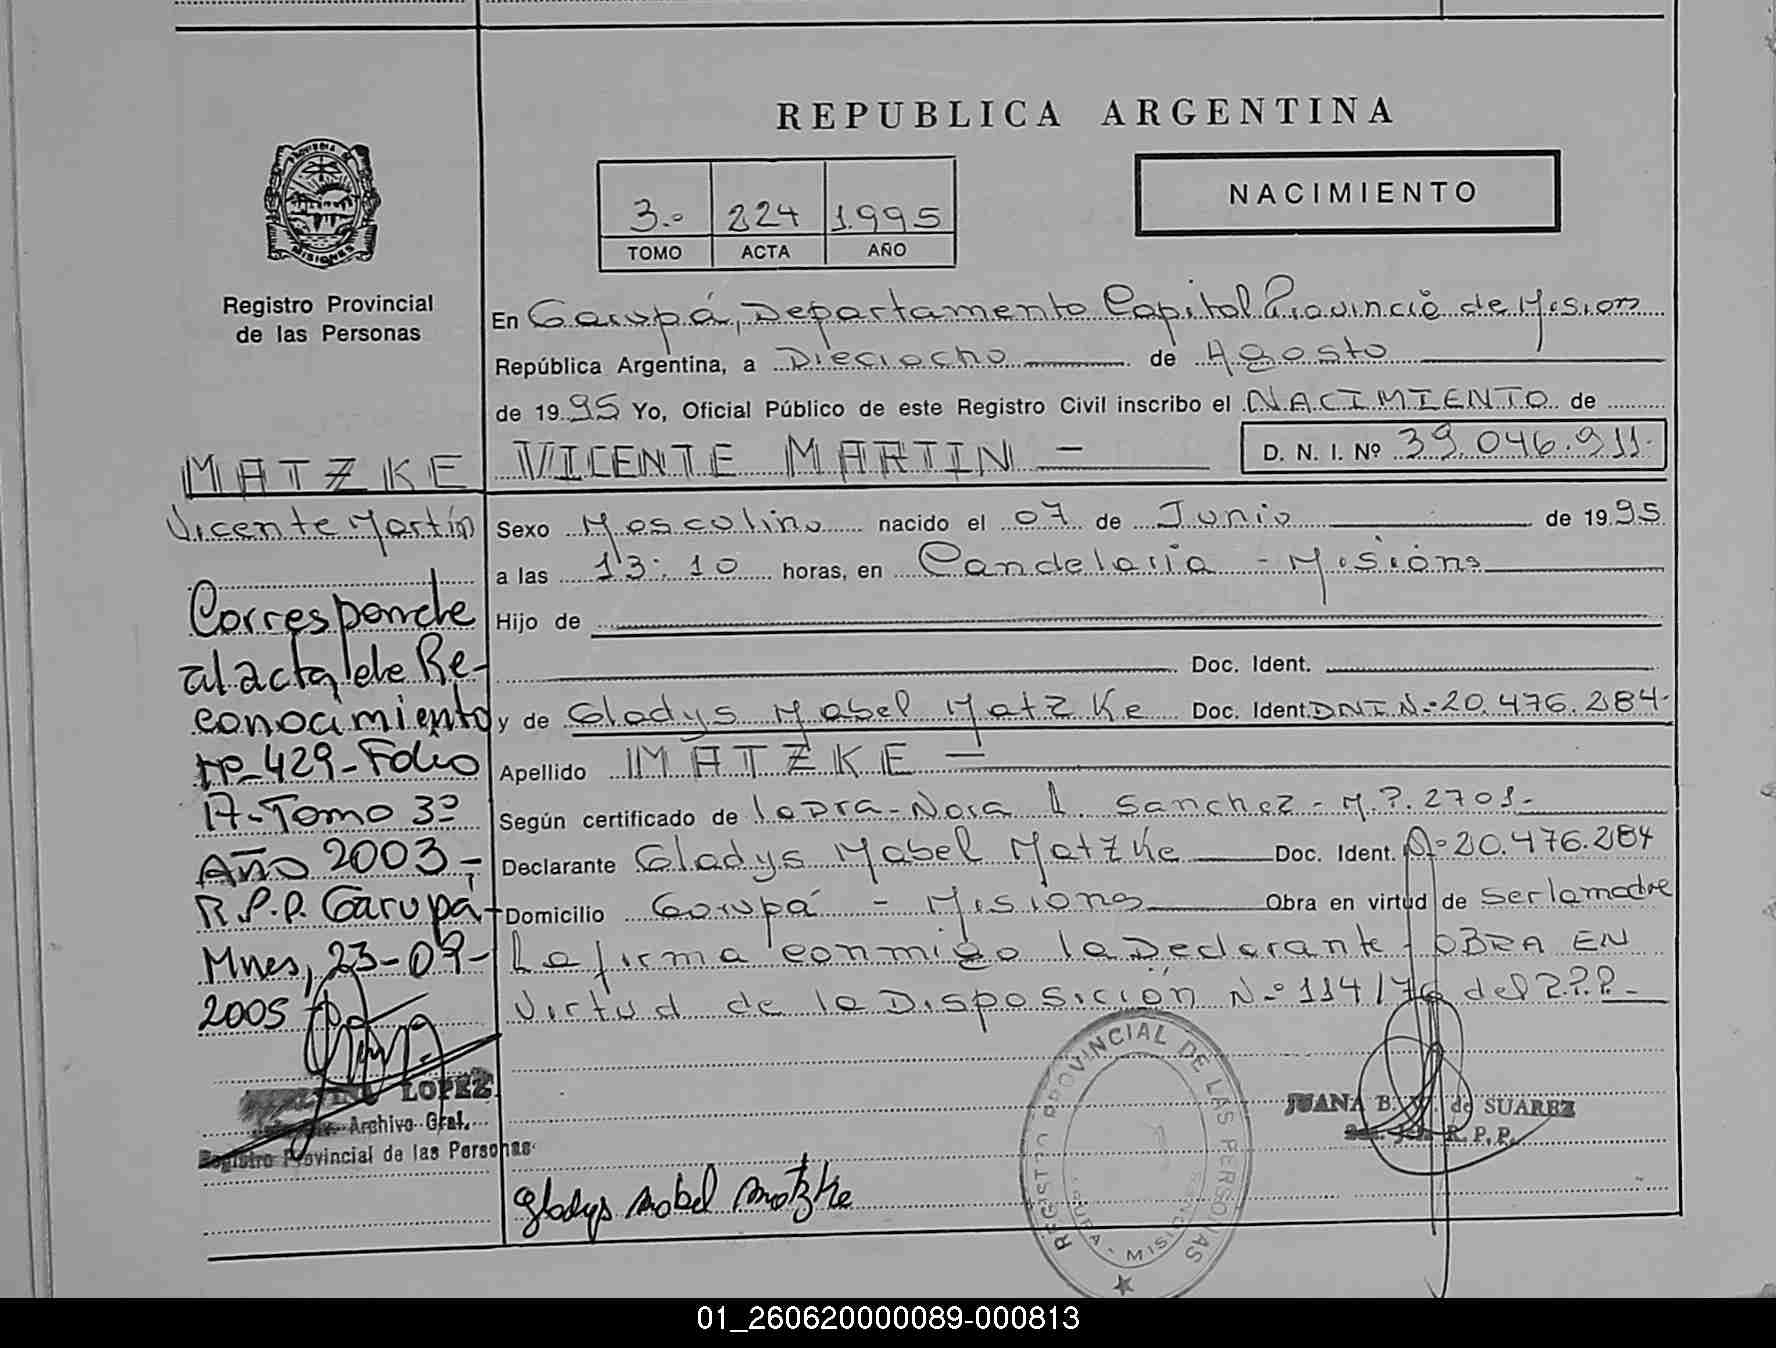 REPUBLICA ARGENTINA
PROVINCIA DE
MISIONES
Registro Provincial
de las Personas
3.º 224 1.995
TOMO ACTA AÑO
NACIMIENTO
En Garupá, Departamento Capital Provincia de Mision
República Argentina, a Dieciocho de Agosto
de 1995 Yo, Oficial Público de este Registro Civil inscribo el NACIMIENTO de
VICENTE MARTIN -
D. N. I. Nº 39.046.911.
Sexo Masculino nacido el 07 de Junio de 1995
a las 13:10 horas, en Candelaria - Misions
Hijo de
Doc. Ident.
y de Gladys Mabel Matzke Doc. Ident. DNI Nº 20.476.284.
Apellido MATZKE -
Según certificado de la Dra. Nora Sanchez - M.P. 2701-
Declarante Gladys Mabel Matzke Doc. Ident. Nº 20.476.284
Domicilio Garupá - Misions Obra en virtud de ser la madre
La firma conmigo la Declarante - OBRA EN
Virtud de la Disposicion Nº 114/76 del R.P.P. -
MATZKE
Vicente Martín
Corresponde
al acta de Re-
conocimiento
Nº 429-Folio
17-Tomo 3º
Año 2003,-
R.P.P. Garupá-
Mnes, 23-09-
2005
LOPEZ
Archivo Gral.
Registro Provincial de las Personas
Gladys Mabel Matzke
REGISTRO PROVINCIAL DE LAS PERSONAS
MISIONES
JUANA B. de SUAREZ
R. P. P.
01_260620000089-000813